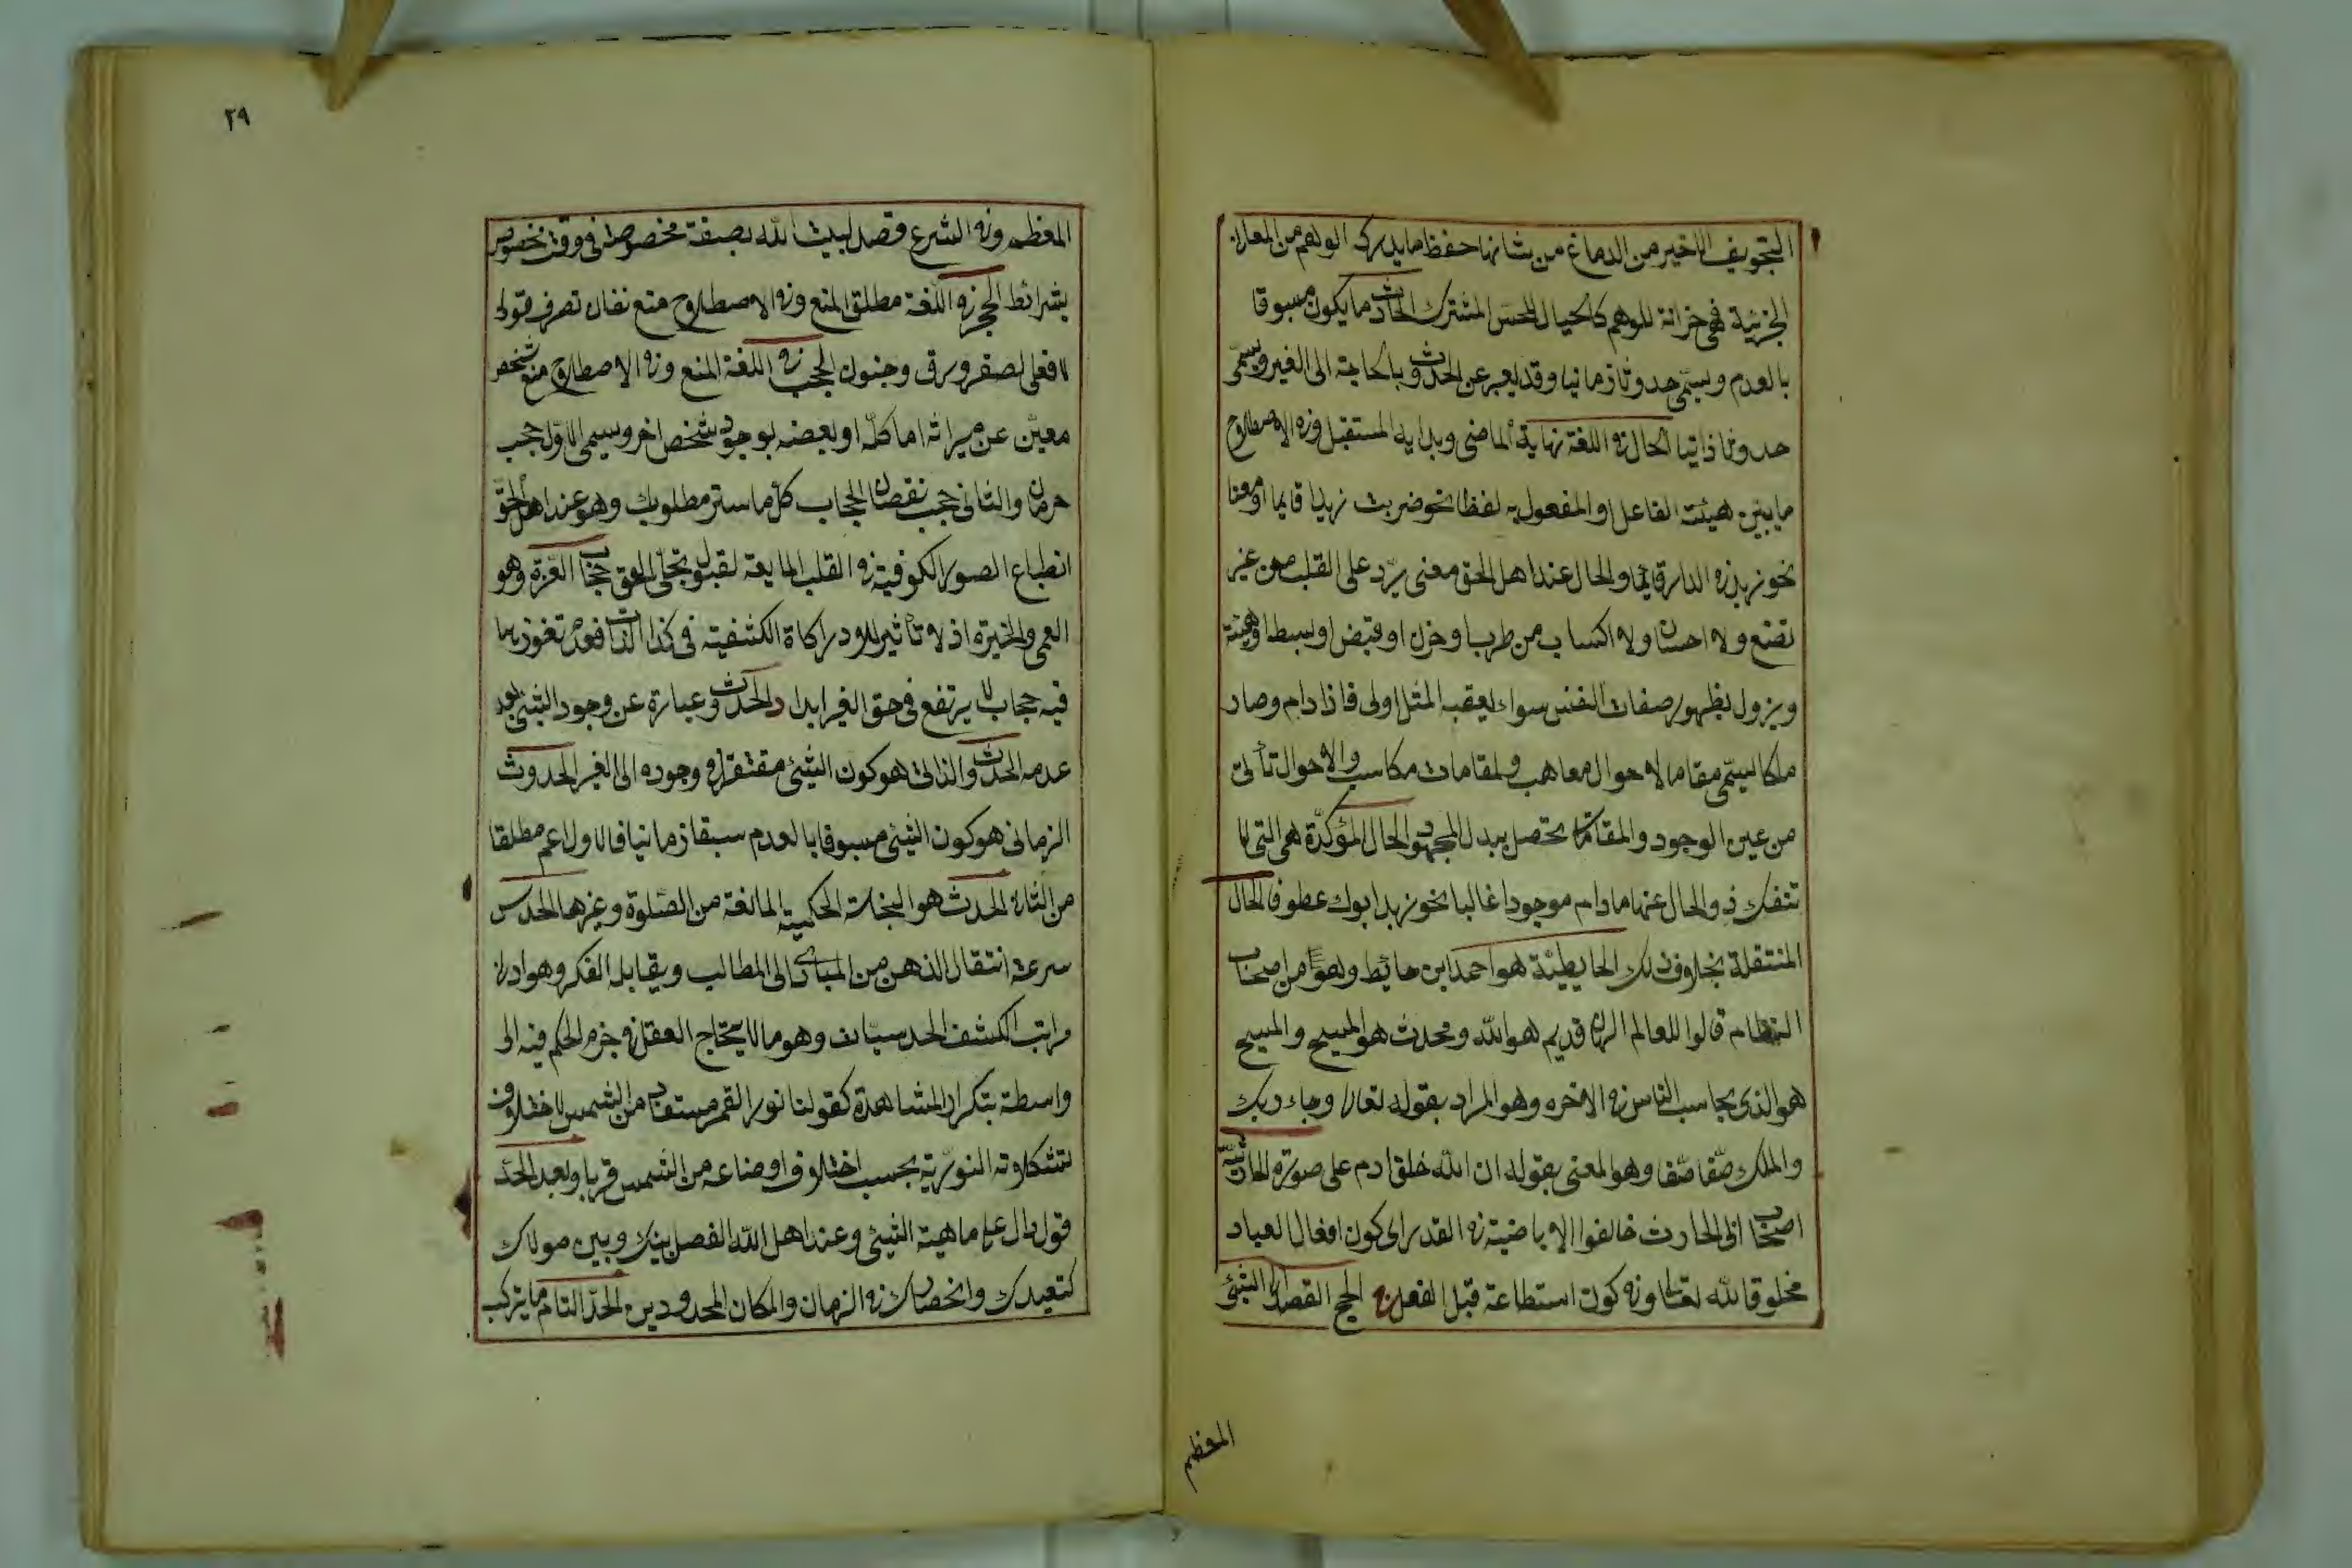 التجويف الاخير من الدماغ من شانها حفظ ما يدركه الوهم من المعاني
الجزئية فهي خزانة للوهم كالخيال للحس المشترك الحادث ما يكون مسبوقا
بالعدم ويسمى حدوثا زمانيا وقد يعبر عن الحدوث بالحاجة الى الغير ويسمى
حدوثا ذاتيا الحال في اللغة نهاية الماضي وبداية المستقبل وفي الاصطلاح
ما يبين هيئت الفاعل او المفعول به لفظا نحو ضربت زيدا قايما او معنا
نحو زيد في الدار قايما والحال عند اهل الحق معنى يرد على القلب من غير
تصنع ولا ولا اكتساب من طرب او حزن او قبض او بسط او هيئة
ويزول بظهور صفات النفس سواء يعقبه المثل اولى فاذا دام وصار
ملكا يسمى مقاما لاحوال معاهب ولمقامات مكاسب والاحوال تأتى
من عين الوجود والمقامات تحصل ببدل المجهود الحال المؤكدة هي التي لا
تنفك ذو الحال عنها ما دام موجودا غالبا نحو زيد ابوك عطوفا الحال
المنتقلة بخلاف ذلك الحايطيئة هو احمد ابن حائيط وهو من اصحاب
النظام قالوا للعالم الهان قديم هو الله ومحدث هو المسيح والمسيح
هو الذي يحاسب الناس في الاخره وهو المراد بقوله تعالى وجاء ربك
والملك صفا صفا وهو المعنى بقوله ان الله خلق ادم على صورته الحارثية
اصحاب ابي الحارث خالفوا الاباضية في القدر اى كون افعال العباد
مخلوقا لله تعالى وفي كون استطاعة قبل الفعل الحج القصد الى الشئ
المعظم
٢٩
المعظم وفي الشرع قصد لبيت الله بصفة مخصوصة في وقت مخصوص
بشرائط الحجر في اللغة مطلق المنع وفي الاصطلاح منع نفاذ تصرف قولى
لا فعلى لصغر ورق وجنون الحجب في اللغة المنع وفي الاصطلاح منع شخص
معين عن ميراثه اما كله او بعضه بوجود شخص اخر ويسمى الاول حجب
حرمان والثاني حجب نقصان الحجاب كل ما ستر مطلوبك وهو عند اهل الحق
انطباع الصور الكوفية في القلب المايعة لقبول تجلى الحق حجاب العزة وهو
العمى والحيرة اذ لا تأثير للادراكاة الكشفية في كذا الذات فعدم تغوزها
فيه حجاب لا يرتفع في حق الغير ابدا الحدوث عبارة عن وجود الشئ بعد
عدمه الحدوث الذاتى هو كون الشئ مفتقرا في وجوده الى الغير الحدوث
الزمانى هو كون الشئ مسبوقا بالعدم سبقا زمانيا فالاول اعم مطلقا
من الثاني الحدث هو النجاسة الحكمية المانعة من الصلوة وغيرها الحدس
سرعة انتقال الذهن من المبادى الى المطالب ويقابله الفكر وهو ادنى
مراتب الكشف الحدسيات وهو ما لا يحتاج العقل في جزم الحكم فيه الى
واسطة بتكرار المشاهدة كقولنا نور القمر مستفاد من الشمس لاختلاف
تشكلاته النورية بحسب اختلاف اوضاعه من الشمس قربا وبعد الحد
قول دال على ماهية الشئ وعند اهل الله الفصل بينك وبين مولاك
كتعبدك وانحصارك في الزمان والمكان المحدودين الحد التام ما يتركب